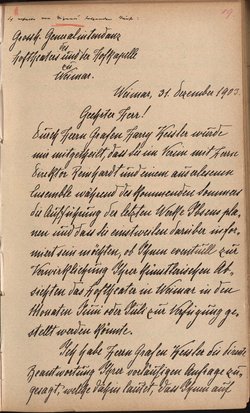 19.
Grossh. Generalintendanz
des
Hoftheaters und der Hofkapelle
zu
Weimar.
Weimar, 31. Dezember 1903.
Geehrter Herr!
Durch Herrn Grafen Harry Kessler wurde
mir mitgetheilt, dass Sie im Verein mit Herrn
Direktor Reinhardt und einem auserlesenen
Ensemble während des kommenden Sommers
die Aufführung der letzten Werke Ibsens pla-
nen und dass Sie einstweilen darüber infor-
miert sein möchten, ob Ihnen eventuell zur
Verwirklichung Ihrer künstlerischen Ab-
sichten das Hoftheater in Weimar in den
Monaten Juni oder Juli zur Verfügung ge-
stellt werden könnte.
Ich habe Herrn Grafen Kessler die direkte
Beantwortung Ihrer vorläufigen Anfrage zu-
gesagt, welche dahin lautet, dass Ihnen auf